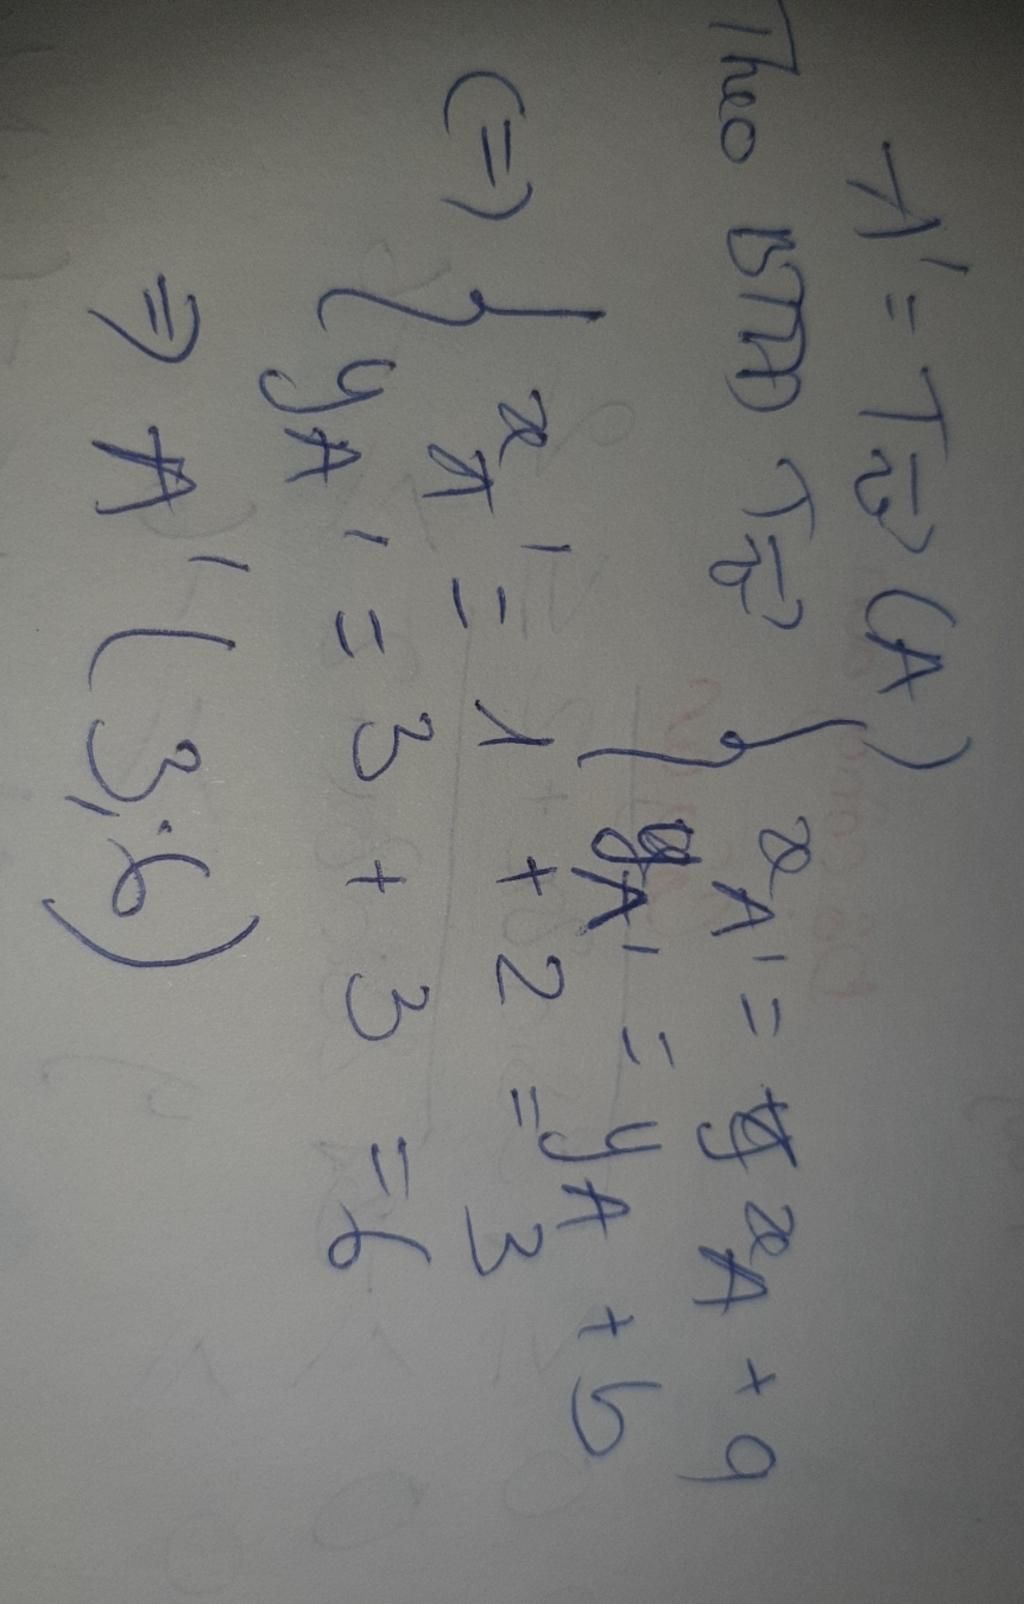 A' = T_v⃗ (A)
Theo BTTĐ T_v⃗ { x_A' = x_A + a
y_A' = y_A + b
(=) { x_A' = 1 + 2 = 3
y_A' = 3 + 3 = 6
⇒ A' (3; 6)